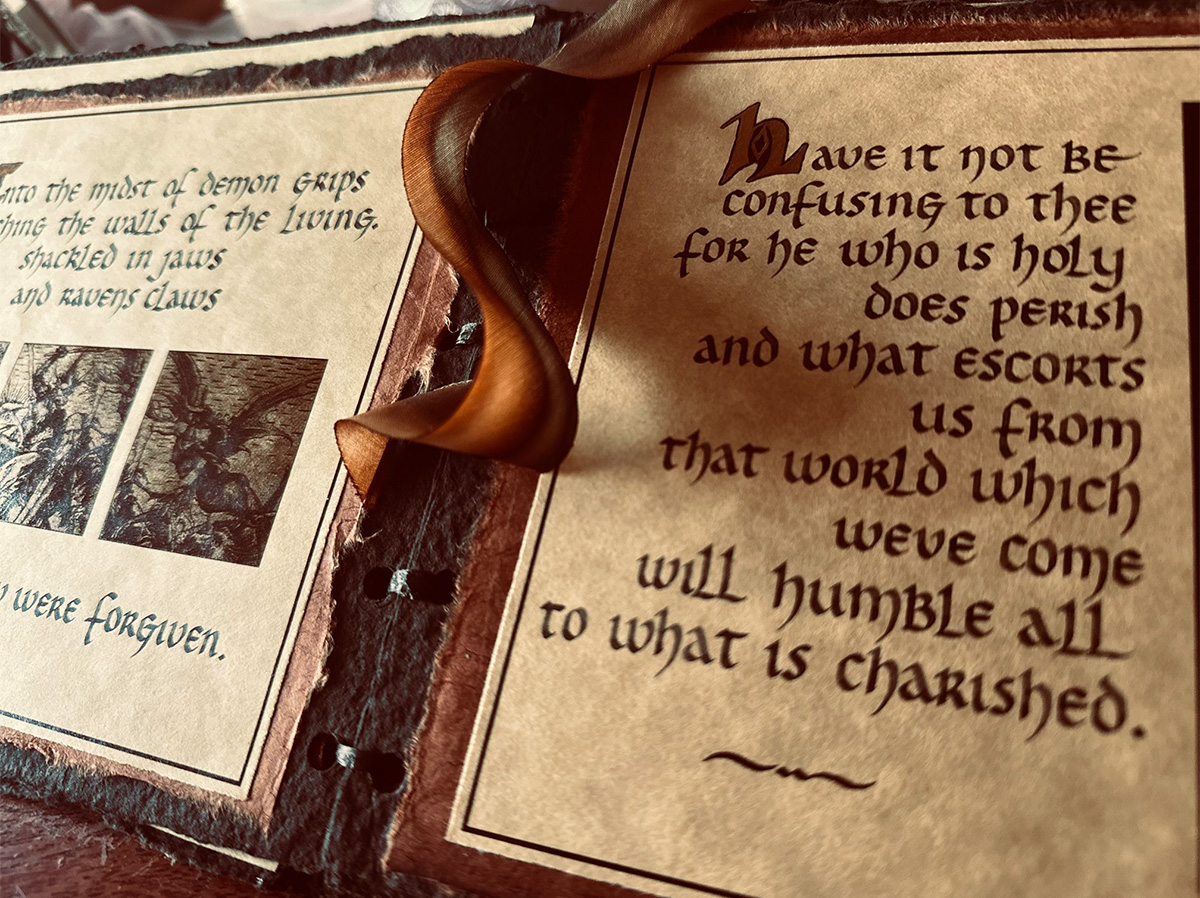 into the midst of demon grips
the walls of the living.
shackled in jaws
and ravens claws
were forgiven.
Have it not be
confusing to thee
for he who is holy
does perish
and what escorts
us from
that world which
weve come
will humble all
to what is charished.